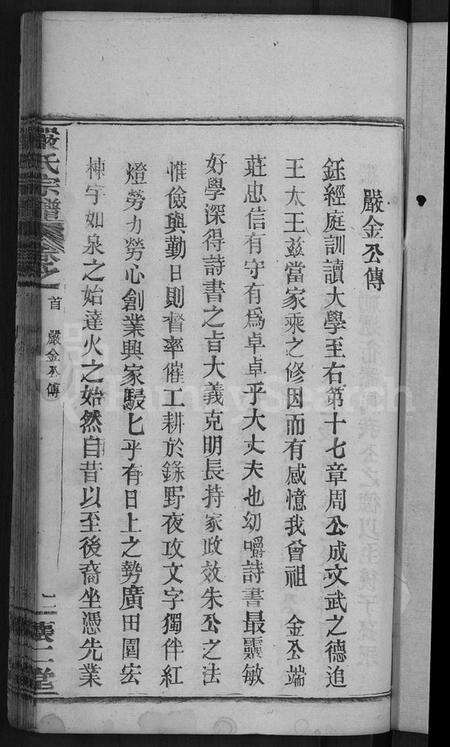 嚴金公傳
鈺經庭訓讀大學至右第十七章周公成文武之德追
王太王玆當家乘之修因而有感憶我曾祖 金公端
莊忠信有守有爲卓卓乎大丈夫也幼嚼詩書最靈敏
好學深得詩書之旨大義克明長持家政效朱公之法
惟儉與勤日則督率催工耕於綠野夜攻文字獨伴紅
燈勞力勞心創業興家駸匕乎有日上之勢廣田園宏
棟宇如泉之始達火之始然自昔以至後裔坐憑先業
嚴氏宗譜 卷之首 嚴金公傳